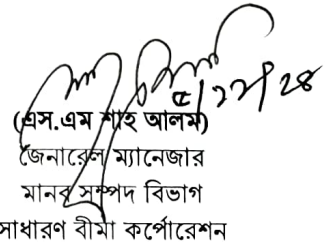 ৫/১২/২৪
(এস.এম শাহ আলম)
জেনারেল ম্যানেজার
মানব সম্পদ বিভাগ
সাধারণ বীমা কর্পোরেশন